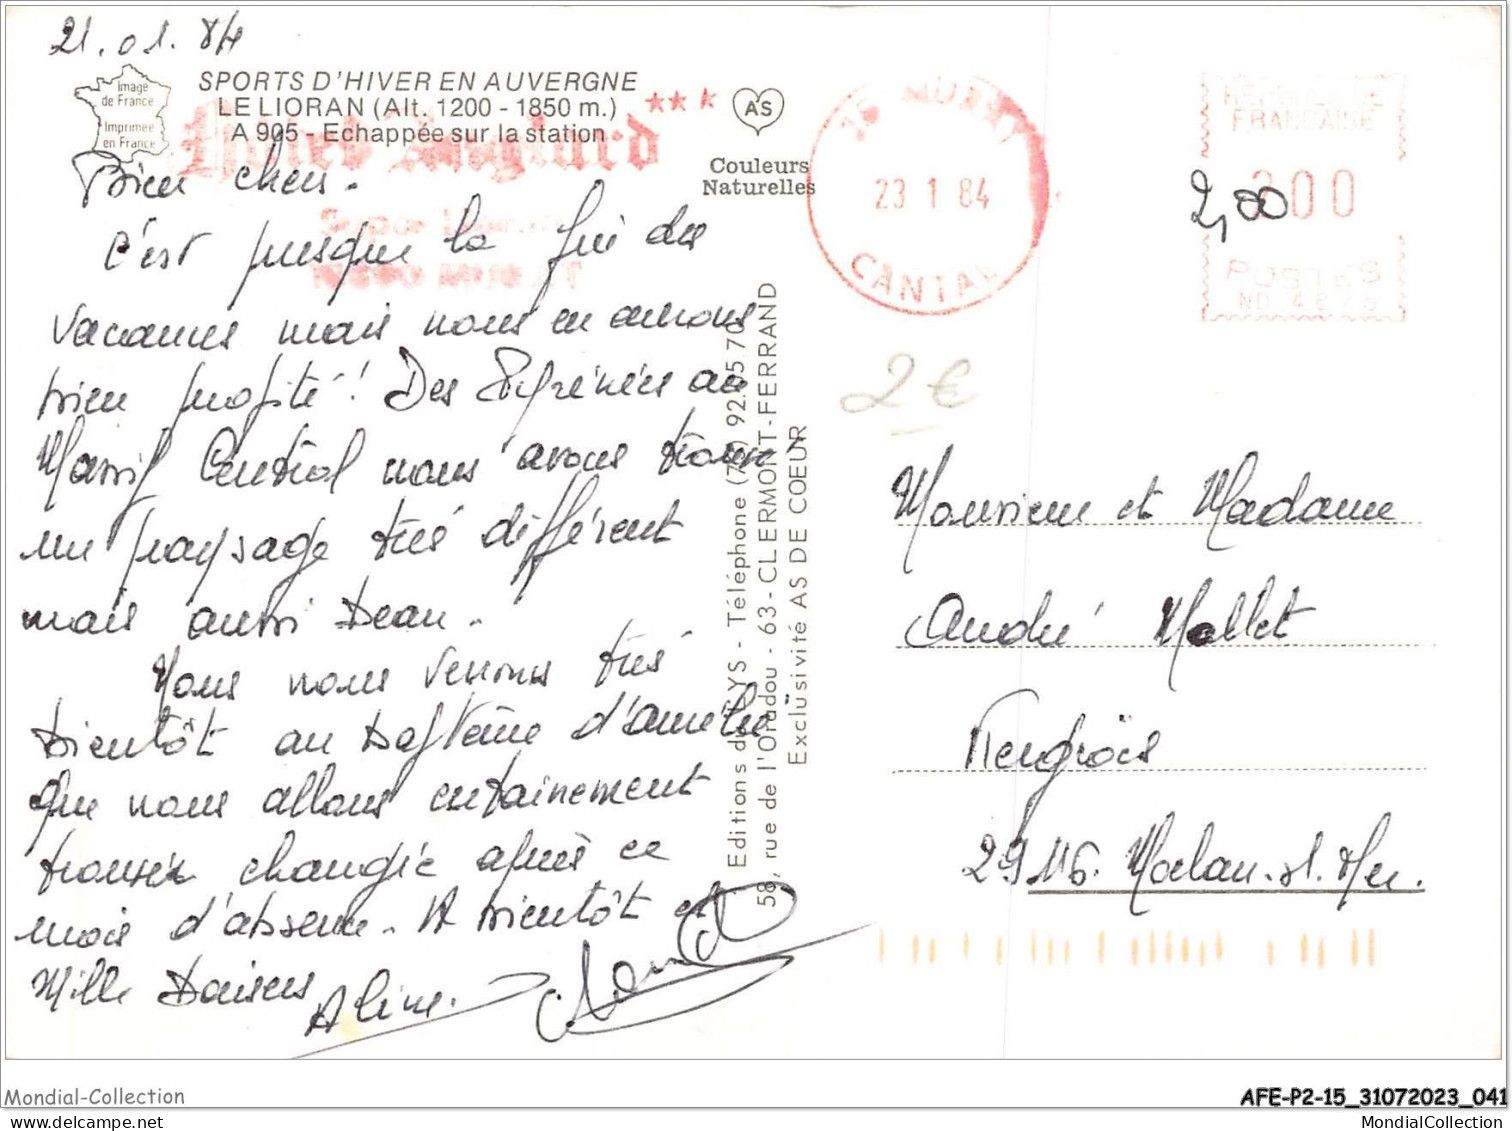 21.01.84
Image
de France
Imprimée
en France
SPORTS D'HIVER EN AUVERGNE
LE LIORAN (Alt. 1200 - 1850 m.)
A 905 - Echappée sur la station
Hotel Anglard ***
Super Lioran
MURAT
AS
Couleurs
Naturelles
15 MURAT
23 1 84
CANTAL
REPUBLIQUE
FRANCAISE
200
2,00
POSTES
2 €
Bien chers.
C'est presque la fin des
vacances mais nous en avons
bien profité! Des Pyrénées au
Massif Central nous avons trouvé
un paysage très différent
mais aussi beau.
Nous nous verrons très
bientôt au baptême d'Amélie
que nous allons certainement
trouver changée après ce
mois d'absence. A bientôt et
Mille baisers Aline.
Editions du LYS - Téléphone (73) 92.05 70
58, rue de l'Oradou - 63 - CLERMONT-FERRAND
Exclusivité AS DE COEUR
Monsieur et Madame
André Mallet
29116. Moëlan. s. Mer.
Mondial-Collection
AFE-P2-15_31072023_041
MondialCollection.com